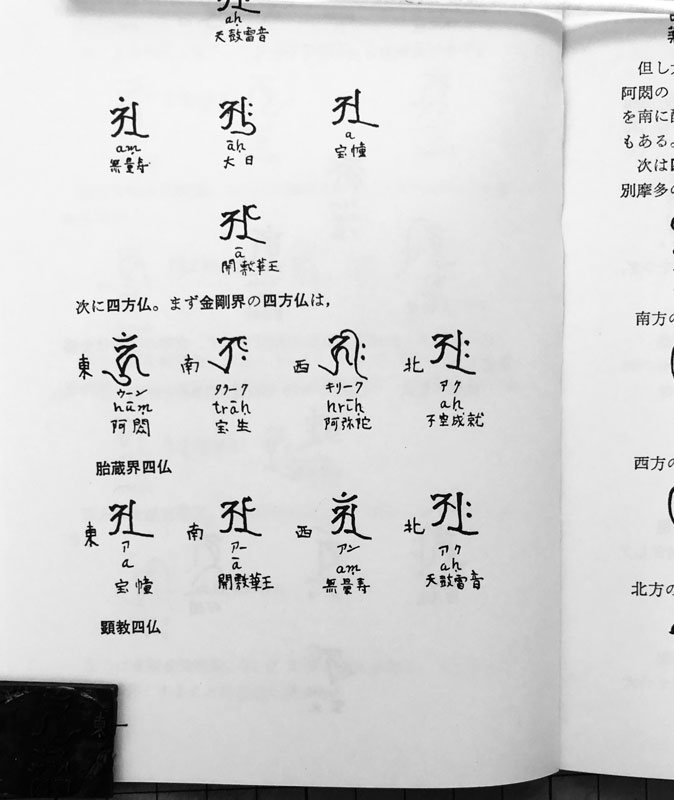 aḥ
天鼓雷音
𑖀𑖽 𑖁𑖾 𑖀
aṃ āḥ a
無量寿 大日 宝幢
𑖁
ā
開敷華王
次に四方仏。まず金剛界の四方仏は,
東 𑖮𑖳𑖽 南 𑖝𑖿𑖨𑖯𑖾 西 𑖮𑖿𑖨𑖱𑖾 北 𑖀𑖾
ウーン タラーク キリーク アク
hūṃ trāḥ hrīḥ aḥ
阿閦 宝生 阿弥陀 不空成就
胎蔵界四仏
東 𑖀 南 𑖁 西 𑖀𑖽 北 𑖀𑖾
ア アー アン アク
a ā aṃ aḥ
宝幢 開敷華王 無量寿 天鼓雷音
顕教四仏
但し
阿閦の
を南に
もある。
次は
別摩多の
南方の
西方の
北方の